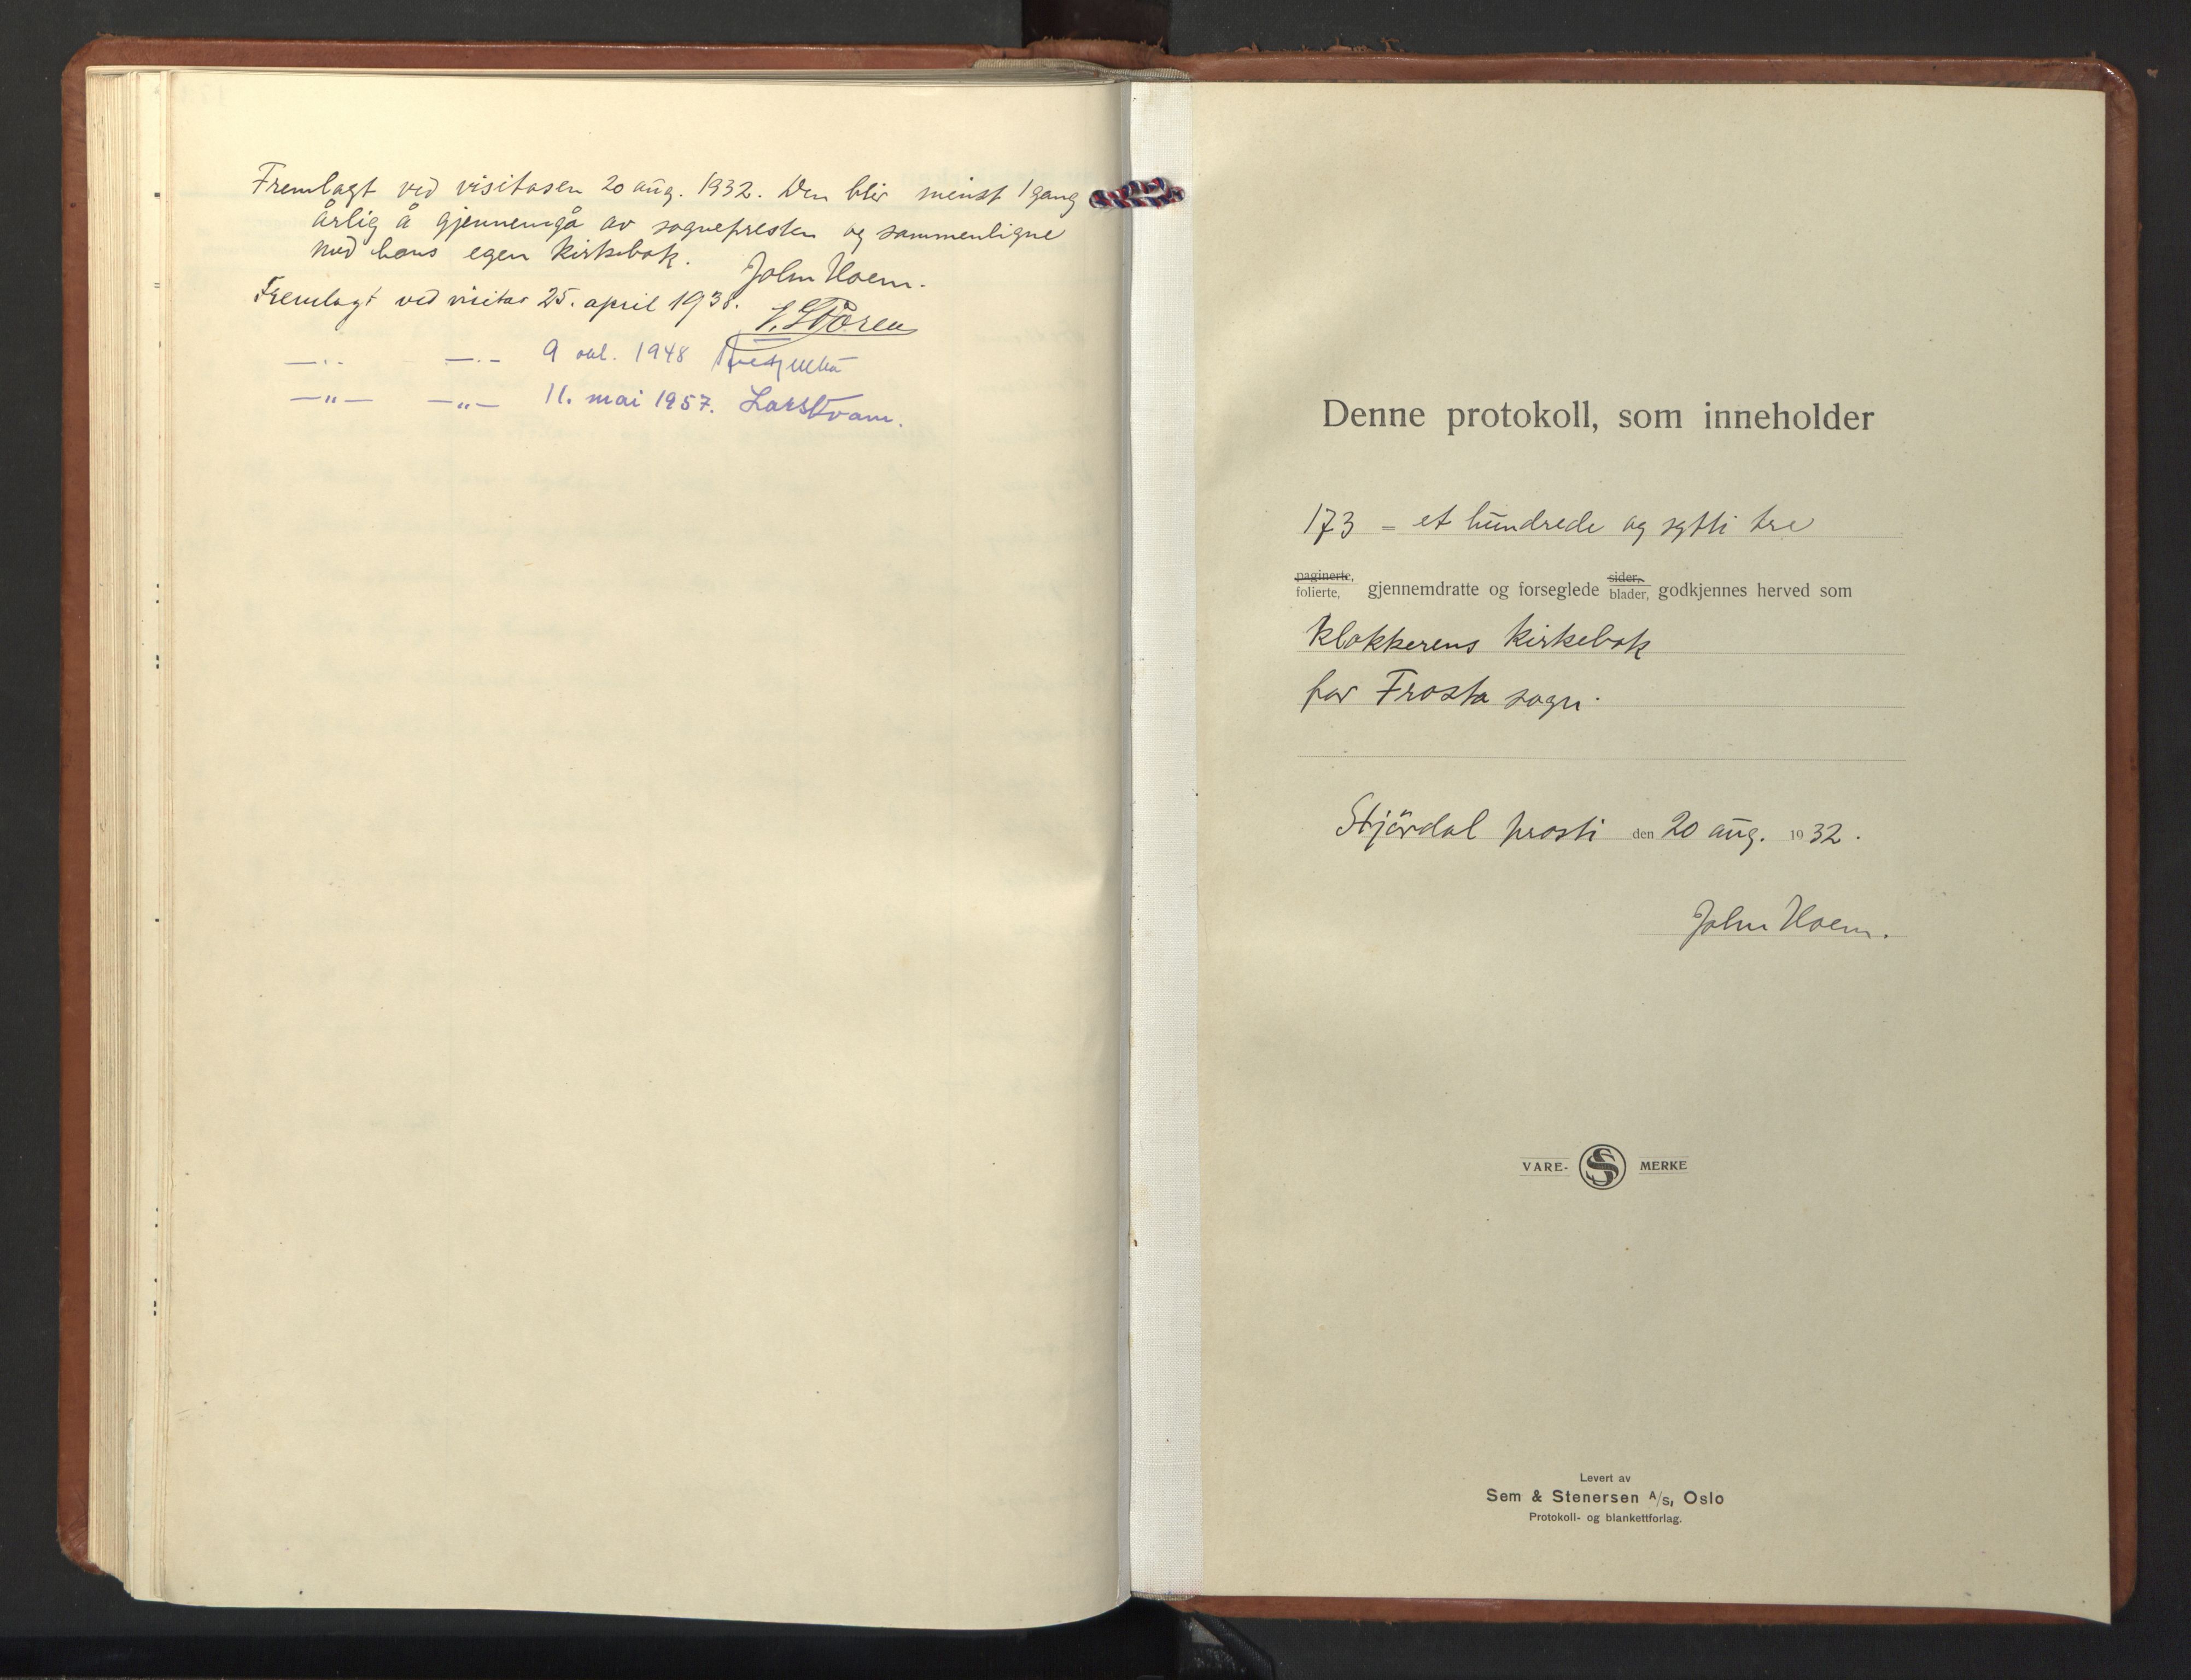 Fremlagt ved visitasen 20 aug. 1932. Den blir minst 1 gang
årlig å gjennemgå av sognepresten og sammenligne
med hans egen kirkebok. John Hoem.
Fremlagt ved visitas 25. april 1938. J. Støren
—.— —.— 9 okt. 1948
—"— —"— 11. mai 1957. Lars Kvam.
Denne protokoll, som inneholder
173 = et hundrede og sytti tre
paginerte, folierte, gjennemdratte og forseglede sider, blader, godkjennes herved som
klokkerens kirkebok
for Frosta sogn.
Stjørdal prosti den 20 aug. 1932.
John Hoem.
VARE- S MERKE
Levert av
Sem & Stenersen A/s, Oslo
Protokoll- og blankettforlag.